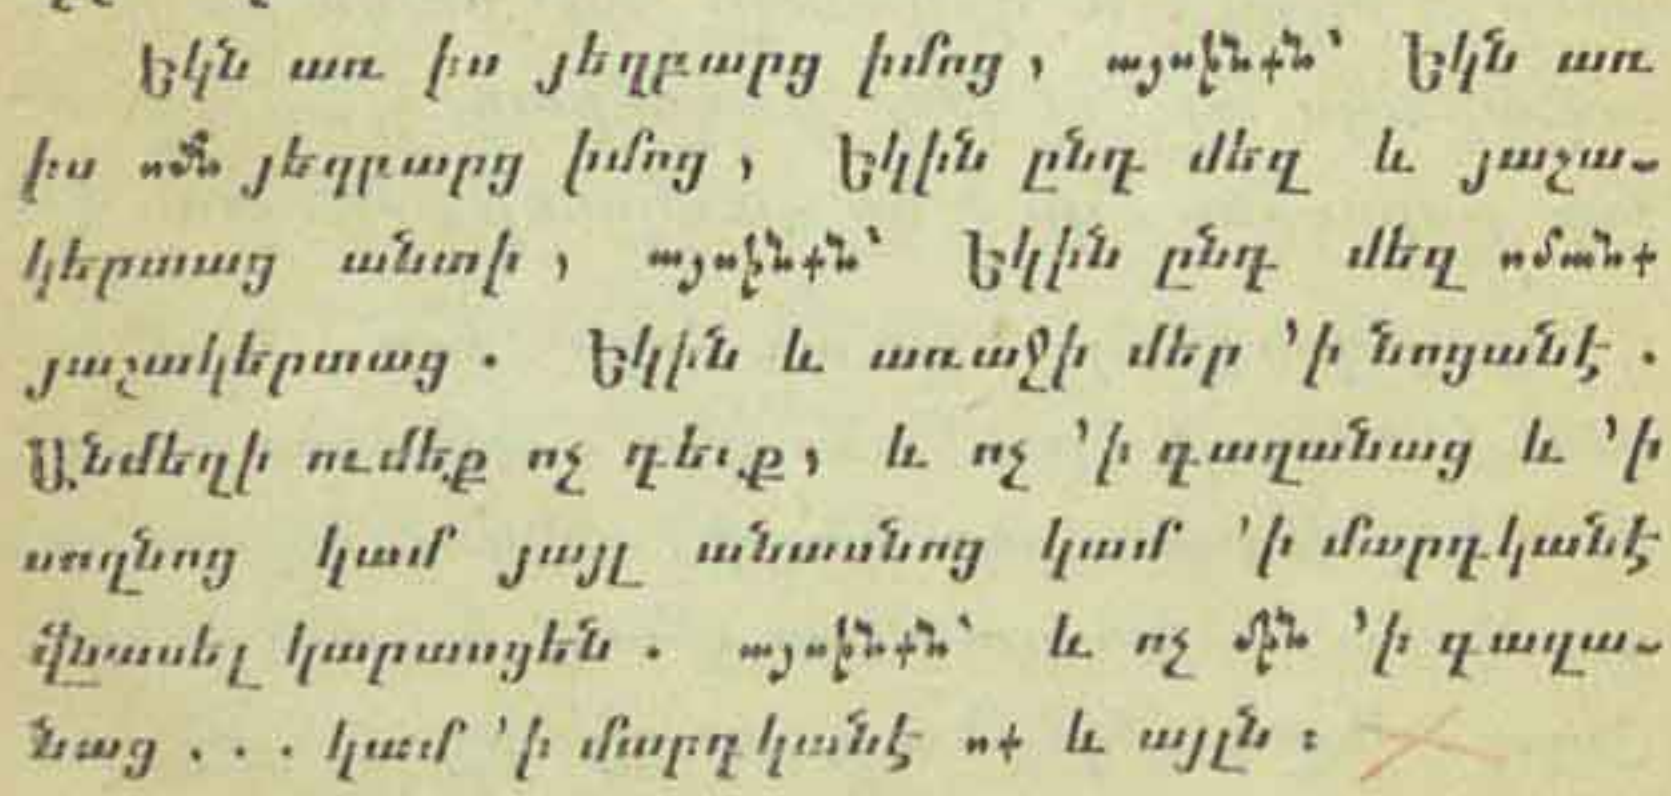 Եկն առ իս յեղբարց իմոց, այսինքն՝ Եկն առ
իս ոմն յեղբարց իմոց, Եկին ընդ մեզ և յաշա-
կերտաց անտի, այսինքն՝ Եկին ընդ մեզ ոմանք
յաշակերտաց. Եկին և առաջի մեր ՚ի նոցանէ.
Անմեղի ումեք ոչ դեւք, և ոչ ՚ի գազանաց և ՚ի
սողնոց կամ յայլ անասնոց կամ ՚ի մարդկանէ
վնասել կարասցեն. այսինքն՝ և ոչ մին ՚ի գազա-
նաց... կամ ՚ի մարդկանէ ոք և այլն: